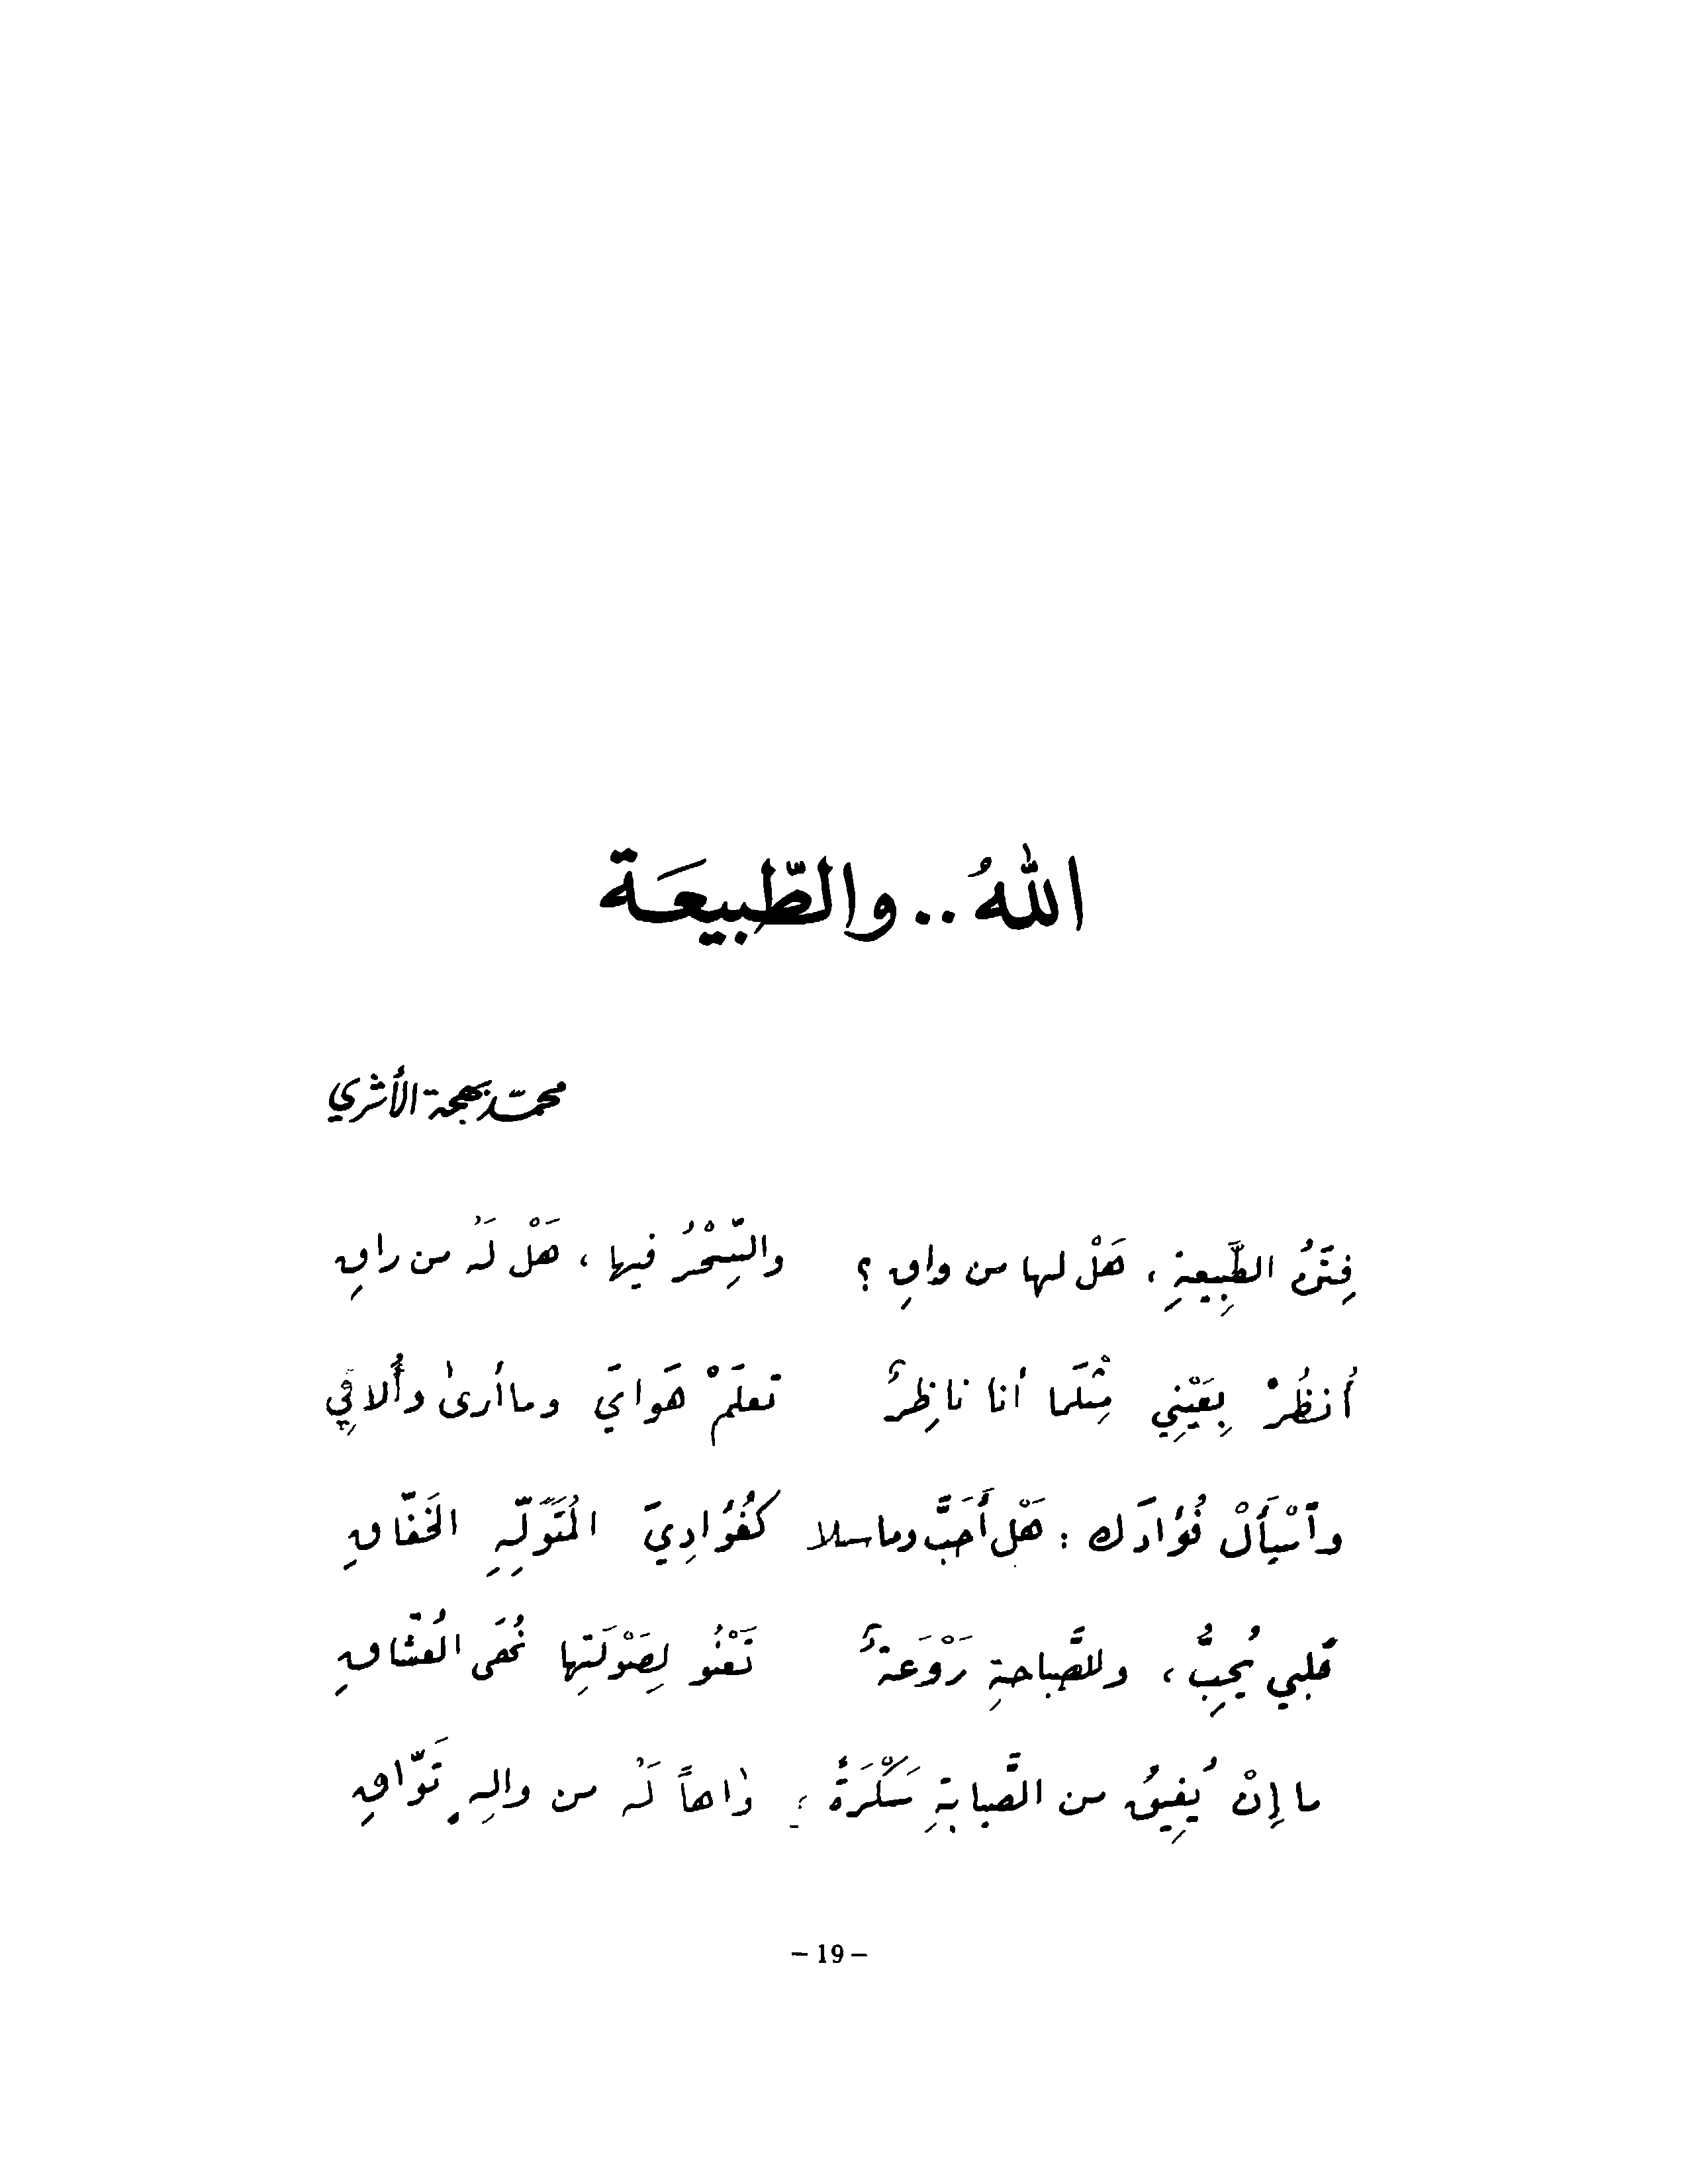 اللهُ .. والطّبيعَة
محمّد بهجة الأثري
فِتَنُ الطَّبِيعةِ ، هَلْ لها من واقِ ؟ والسِّحْرُ فيها ، هَلْ لَهُ من راقِ
أُنظُرْ بِعَيْنِي مِثْلَما أنا ناظِرٌ تعلَمْ هَوايَ وما أرى وأُلاقِي
وآسْأَلْ فُؤادَك : هَلْ أَحَبَّ وما سلا كَفُؤادِيَ المُتَوَلِّهِ الخَفّاقِ
قلبي يُحِبُّ ، وللصَّباحةِ رَوْعَةٌ تَعْنُو لِصَوْلَتِها نُهَى العُشّاقِ
ما إِنْ يُفِيقُ من الصَّبابةِ سَكْرَةً ؛ وٰاهاً لَهُ من والِهٍ تَوّاقِ
– 19 –